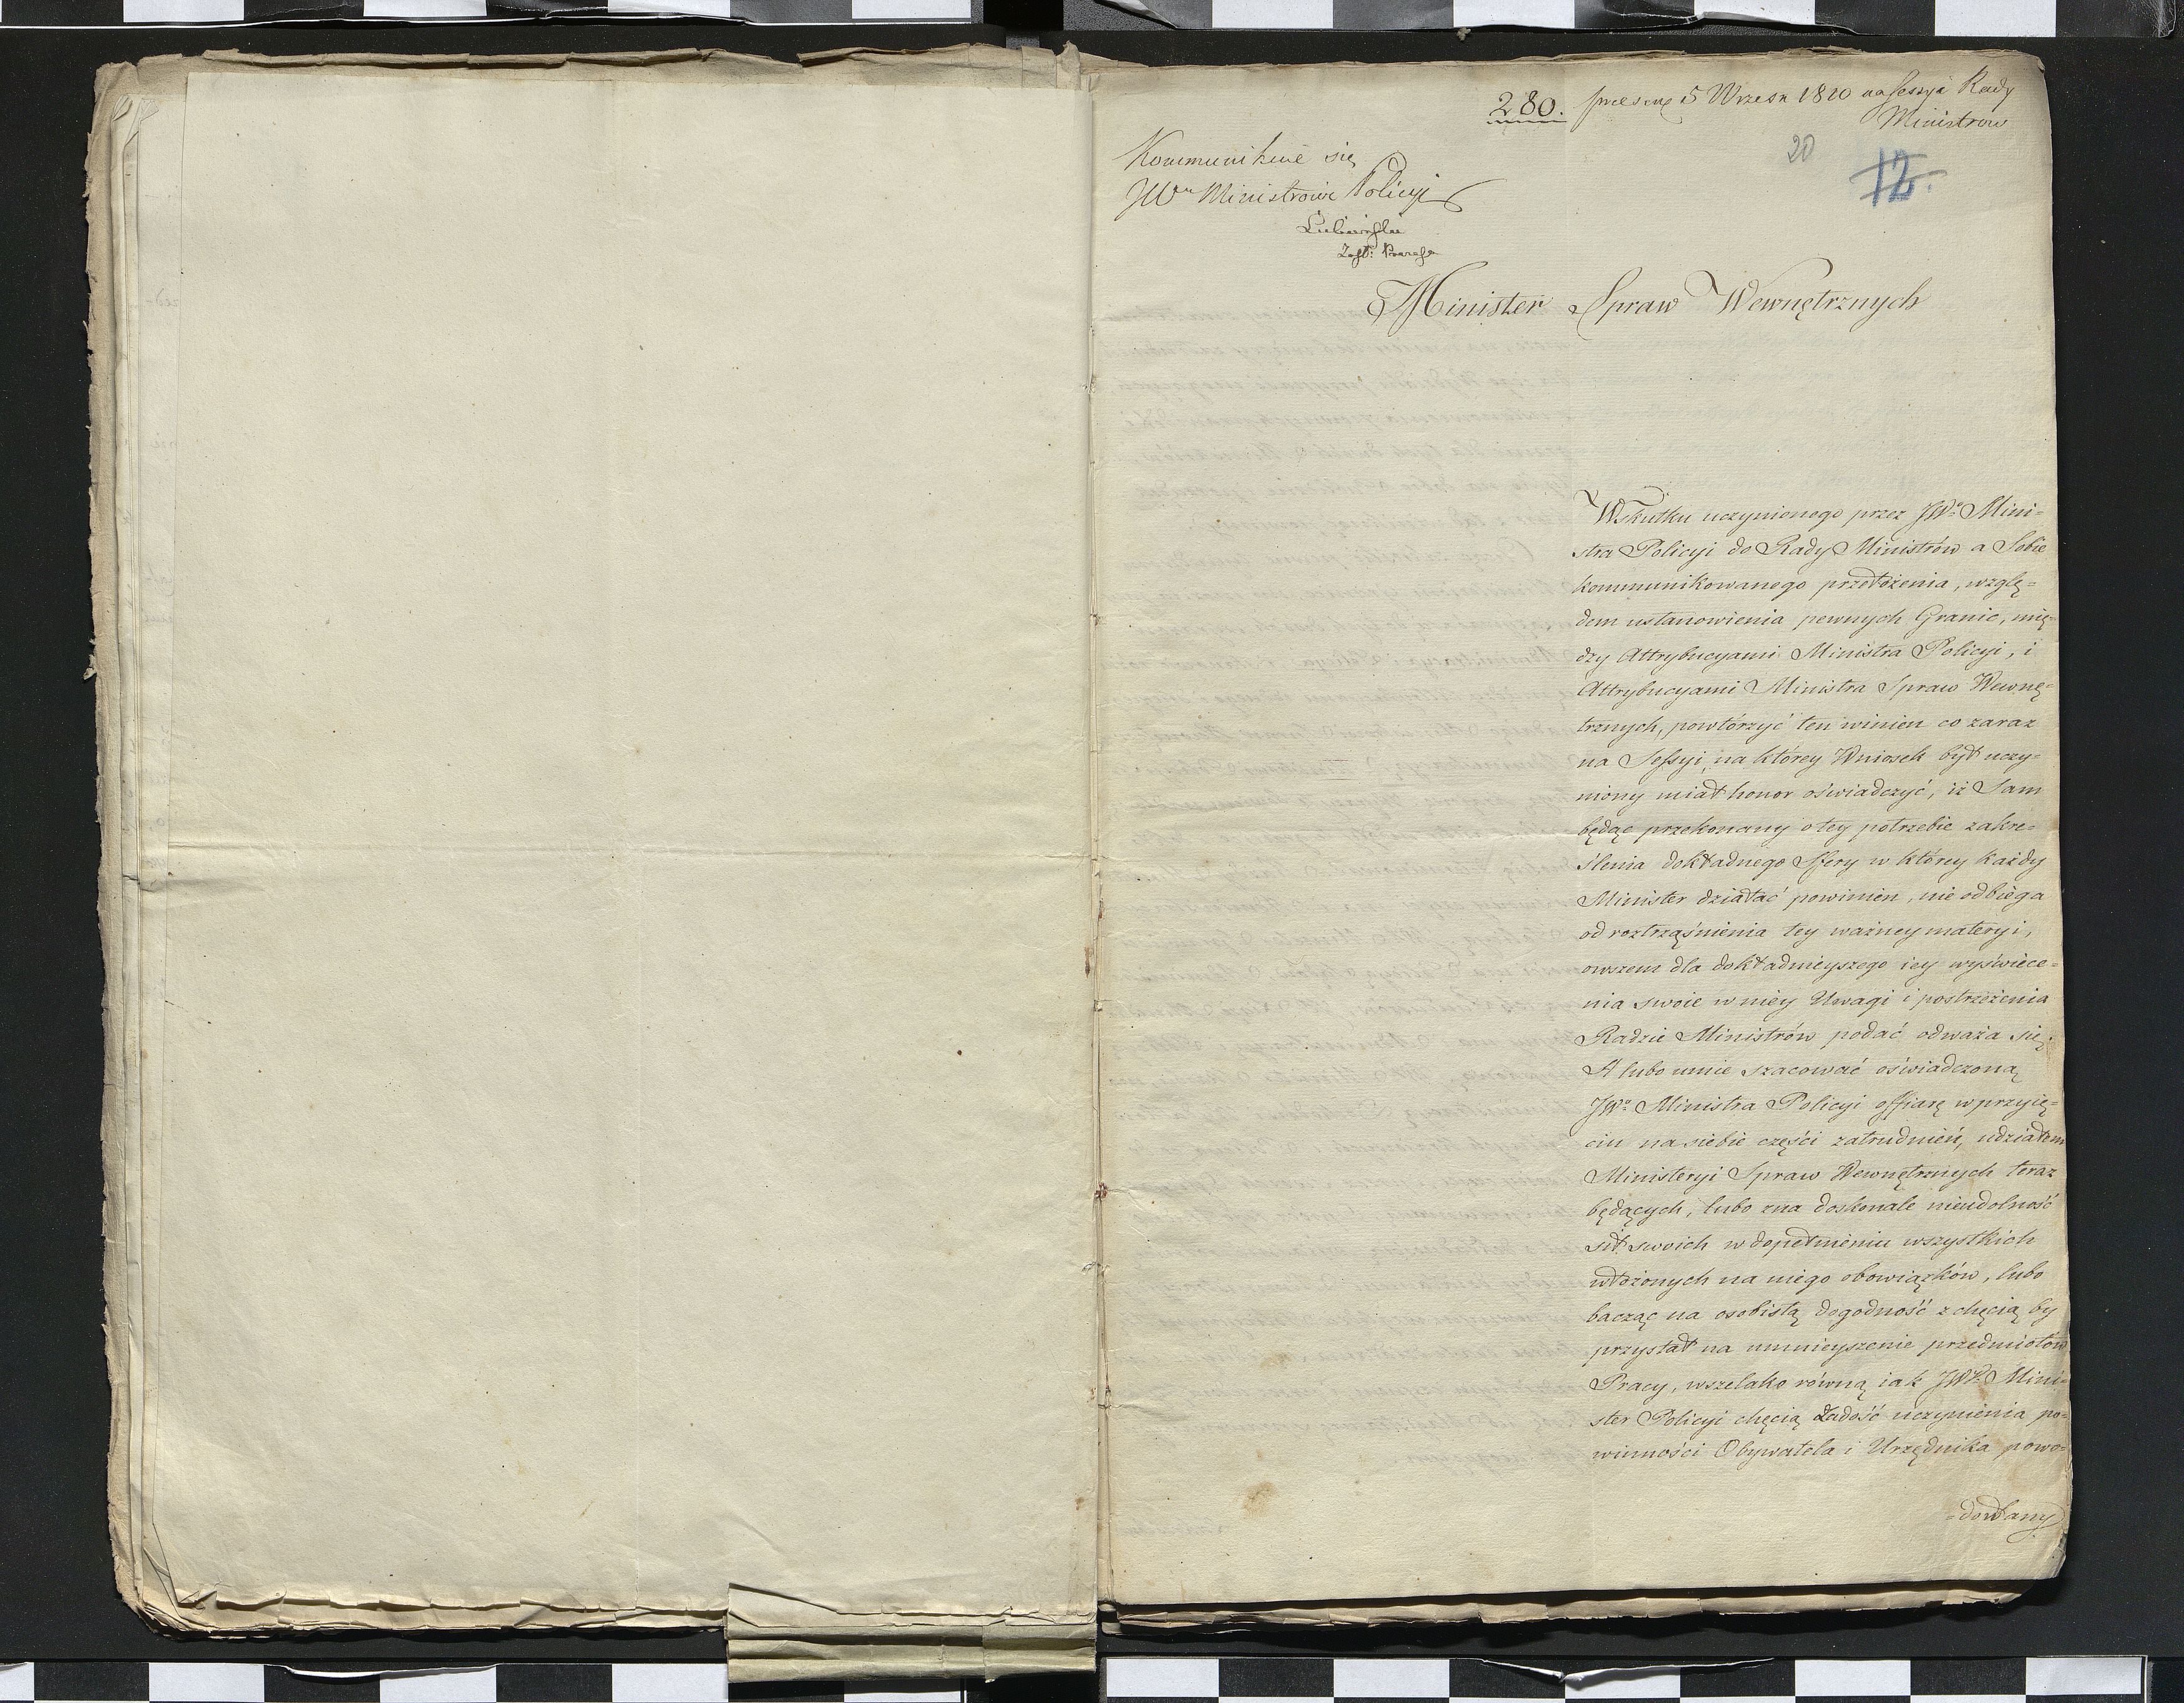 280. praesent 5 Wrzesn 1810 na Sessyi Rady
Ministrow
20
12.
Kommunikuie się
JWu Ministrowi Policyi
Lubieński
Zast: Prezesa
Minister Spraw Wewnętrznych
Wskutku uczynionego przez JWo Mini=
stra Policyi do Rady Ministrów a Sobie
kommunikowanego przełożenia, wzglę=
dem ustanowienia pewnych Granic, mię=
dzy Attrybucyami Ministra Policyi, i
Attrybucyami Ministra Spraw Wewnę=
trznych, powtórzyć ten winien co zaraz
na Sessyi, na którey Wniosek był uczy=
niony miał honor oświadczyć, iż Sam
będąc przekonany o tey potrzebie zakre=
ślenia dokładnego Sfery w którey każdy
Minister działać powinien, nie odbiega
od roztrząśnienia tey ważney materyi,
owszem dla dokładnieyszego iey wyświece=
nia swoie w niey Uwagi i postrzeżenia
Radzie Ministrów podać odważa się.
A lubo umie szacować oświadczoną
JWo Ministra Policyi offiarę w przyię=
ciu na siebie części zatrudnień, udziałem
Ministeryi Spraw Wewnętrznych teraz
będących, lubo zna doskonale nieudolność
sił swoich w dopełnieniu wszystkich
włożonych na niego obowiązków, lubo
bacząc na osobistą dogodność z chęcią by
przystał na umnieyszenie przedmiotów
Pracy, wszelako równą iak JWy Mini=
ster Policyi chęcią Zadość uczynienia po=
winności Obywatela i Urzędnika powo=
=dowany